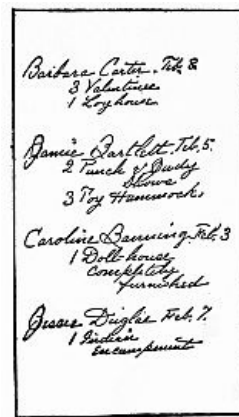 Barbara Carter. Feb. 8
3 Valentines
1 Loghouse
Jamie Bartlett Feb. 5.
2 Punch & Judy
Shows
3 Toy Hammocks
Caroline Banning. Feb. 3
1 Doll-house
completely
furnished
Jessie Feb. 7.
1 Indian
Encampment